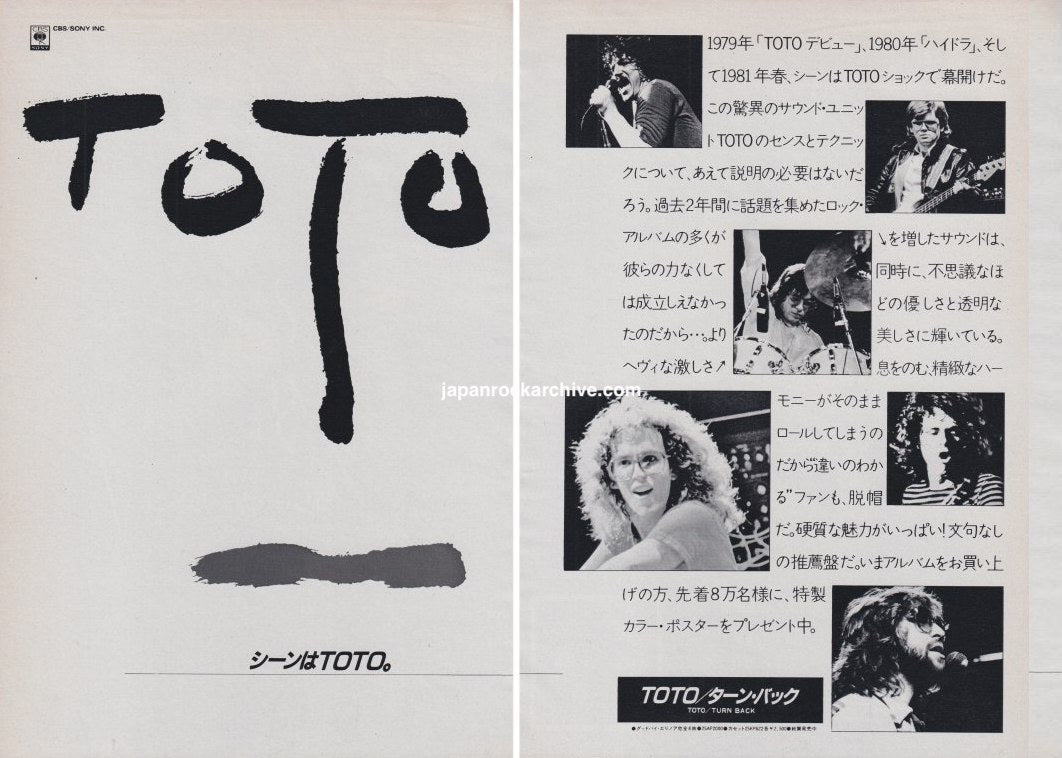 CBS
SONY
CBS/SONY INC.
TOTO
シーンはTOTO。
1979年「TOTO デビュー」、1980年「ハイドラ」、そし
て1981年春、シーンはTOTOショックで幕開けだ。
この驚異のサウンド・ユニッ
トTOTOのセンスとテクニッ
クについて、あえて説明の必要はないだ
ろう。過去2年間に話題を集めたロック・
アルバムの多くが
彼らの力なくして
は成立しえなかっ
たのだから…。より
ヘヴィな激しさ↗
↘を増したサウンドは、
同時に、不思議なほ
どの優しさと透明な
美しさに輝いている。
息をのむ、精緻なハー
モニーがそのまま
ロールしてしまうの
だから“違いのわか
る”ファンも、脱帽
だ。硬質な魅力がいっぱい!文句なし
の推薦盤だ。いまアルバムをお買い上
げの方、先着8万名様に、特製
カラー・ポスターをプレゼント中。
TOTO/ターン・バック
TOTO/TURN BACK
●グッドバイ・エリノア他全8曲●25AP2000●カセット25KP822各¥2,500●絶賛発売中
japanrockarchive.com